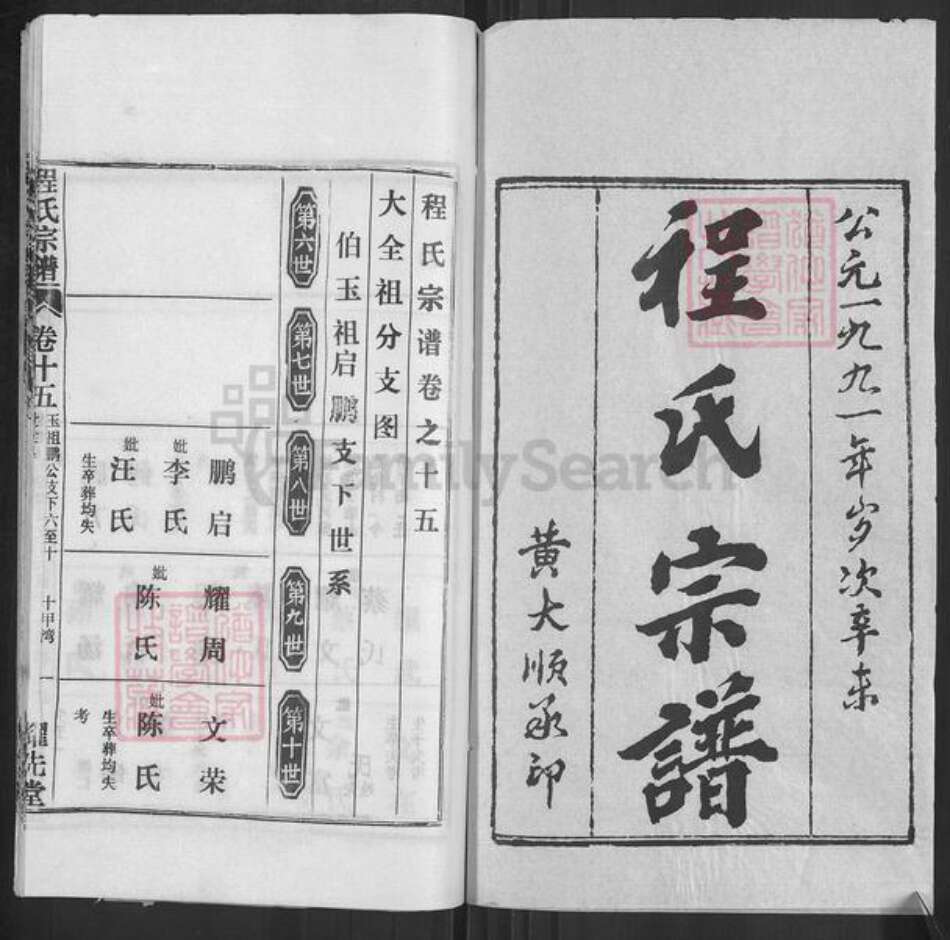 公元一九九一年岁次辛未
程氏宗譜
黄大顺承印
程氏宗谱卷之十五
大全祖分支图
伯玉祖启鹏支下世系
第六世
第七世
第八世
第九世
第十世
鹏启
妣李氏
妣汪氏
生卒葬均失
耀周
妣陈氏
文荣
妣陈氏
生卒葬均失
考
程氏宗谱
卷十五
玉祖鹏公支下六至十
十甲湾
一
先堂
FamilySearch